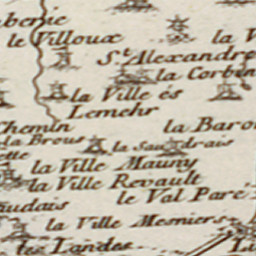 le Villoux
St. Alexandre
la V
la Corbin
la Ville és
Lemehr
Chemin
la Baro
la Brous
la Saudrais
ette
la Ville Mauny
la Ville Revault
le Val Paré
audais
la Ville Mesniers
les Landes